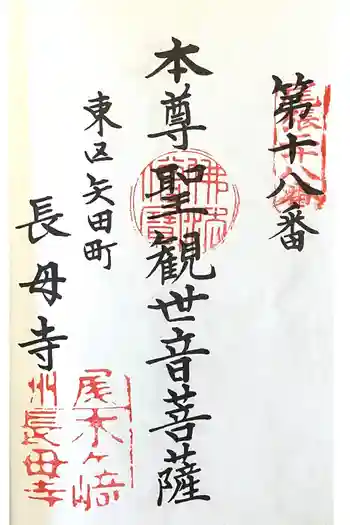 第十八番
本尊聖観世音菩薩
東区矢田町
長母寺
尾木ケ崎
州長母寺